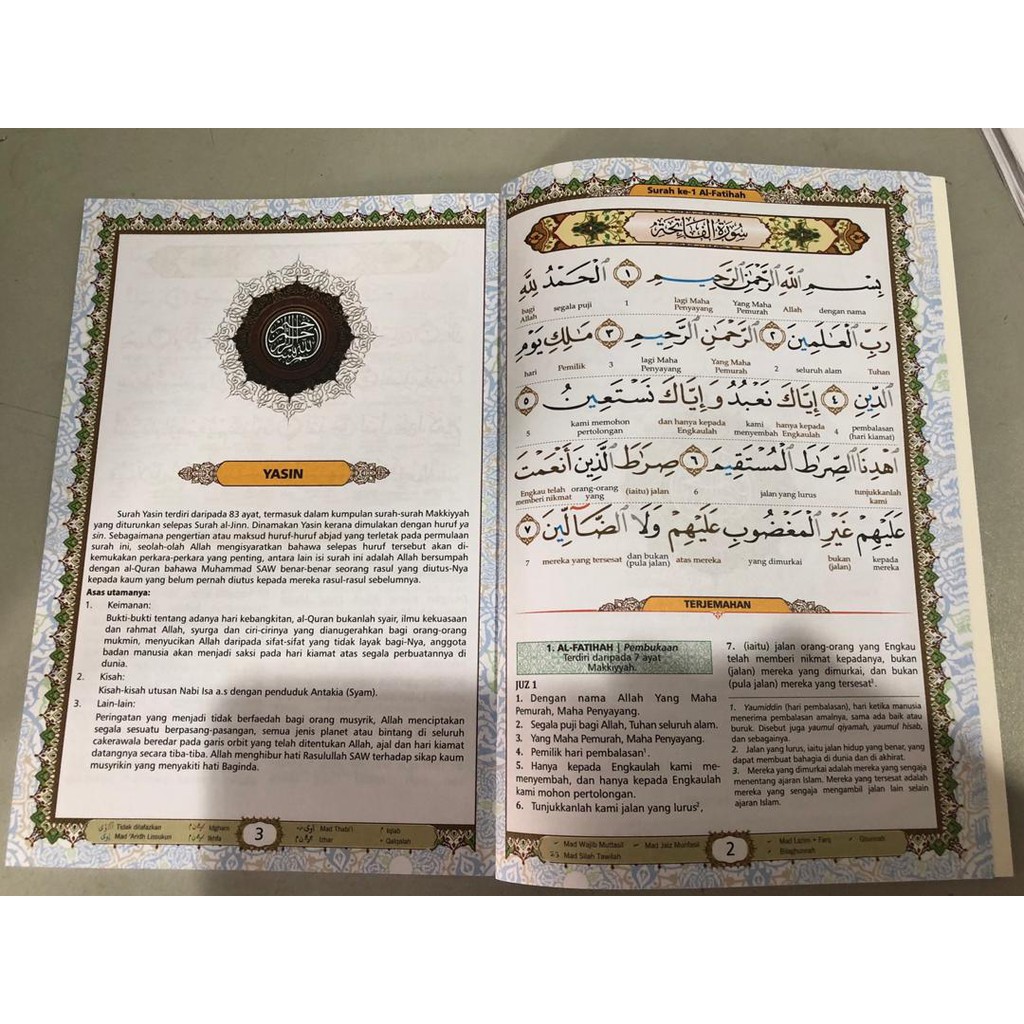 Surah ke-1 Al-Fatihah
سورة الفاتحة
بِسْمِ ٱللَّهِ ٱلرَّحْمَٰنِ ٱلرَّحِيمِ ١ ٱلْحَمْدُ لِلَّهِ
dengan nama Allah Yang Maha Pemurah lagi Maha Penyayang 1 segala puji bagi Allah
رَبِّ ٱلْعَٰلَمِينَ ٢ ٱلرَّحْمَٰنِ ٱلرَّحِيمِ ٣ مَٰلِكِ يَوْمِ
Tuhan seluruh alam 2 Yang Maha Pemurah lagi Maha Penyayang 3 Pemilik hari
ٱلدِّينِ ٤ إِيَّاكَ نَعْبُدُ وَإِيَّاكَ نَسْتَعِينُ ٥
pembalasan (hari kiamat) 4 hanya kepada Engkaulah kami menyembah dan hanya kepada Engkaulah kami memohon pertolongan 5
ٱهْدِنَا ٱلصِّرَٰطَ ٱلْمُسْتَقِيمَ ٦ صِرَٰطَ ٱلَّذِينَ أَنْعَمْتَ
tunjukkanlah kami jalan yang lurus 6 (iaitu) jalan orang-orang yang Engkau telah memberi nikmat
عَلَيْهِمْ غَيْرِ ٱلْمَغْضُوبِ عَلَيْهِمْ وَلَا ٱلضَّآلِّينَ ٧
kepada mereka bukan (jalan) yang dimurkai atas mereka dan bukan (pula jalan) mereka yang tersesat 7
TERJEMAHAN
1. AL-FATIHAH | Pembukaan
Terdiri daripada 7 ayat
Makkiyyah.
JUZ 1
1. Dengan nama Allah Yang Maha
Pemurah, Maha Penyayang.
2. Segala puji bagi Allah, Tuhan seluruh alam.
3. Yang Maha Pemurah, Maha Penyayang.
4. Pemilik hari pembalasan¹.
5. Hanya kepada Engkaulah kami me-
menyembah, dan hanya kepada Engkaulah
kami mohon pertolongan.
6. Tunjukkanlah kami jalan yang lurus²,
7. (iaitu) jalan orang-orang yang Engkau
telah memberi nikmat kepadanya, bukan
(jalan) mereka yang dimurkai, dan bukan
(pula jalan) mereka yang tersesat³.
1. Yaumiddin (hari pembalasan), hari ketika manusia
menerima pembalasan amalnya, sama ada baik atau
buruk. Disebut juga yaumul qiyamah, yaumul hisab,
dan sebagainya.
2. Jalan yang lurus, iaitu jalan hidup yang benar, yang
dapat membuat bahagia di dunia dan di akhirat.
3. Mereka yang dimurkai adalah mereka yang sengaja
menentang ajaran Islam. Mereka yang tersesat adalah
mereka yang sengaja mengambil jalan lain selain
ajaran Islam.
Mad Wajib Muttasil Mad Jaiz Munfasil Mad Lazim
Mad Silah Tawilah Bilaghunnah
2
YASIN
Surah Yasin terdiri daripada 83 ayat, termasuk dalam kumpulan surah-surah Makkiyyah
yang diturunkan selepas Surah al-Jinn. Dinamakan Yasin kerana dimulakan dengan huruf ya
sin. Sebagaimana pengertian atau maksud huruf-huruf abjad yang terletak pada permulaan
surah ini, seolah-olah Allah mengisyaratkan bahawa selepas huruf tersebut akan di-
kemukakan perkara-perkara yang penting, antara lain isi surah ini adalah Allah bersumpah
dengan al-Quran bahawa Muhammad SAW benar-benar seorang rasul yang diutus-Nya
kepada kaum yang belum pernah diutus kepada mereka rasul-rasul sebelumnya.
Asas utamanya:
1. Keimanan:
Bukti-bukti tentang adanya hari kebangkitan, al-Quran bukanlah syair, ilmu kekuasaan
dan rahmat Allah, syurga dan ciri-cirinya yang dianugerahkan bagi orang-orang
mukmin, menyucikan Allah daripada sifat-sifat yang tidak layak bagi-Nya, anggota
badan manusia akan menjadi saksi pada hari kiamat atas segala perbuatannya di
dunia.
2. Kisah:
Kisah-kisah utusan Nabi Isa a.s dengan penduduk Antakia (Syam).
3. Lain-lain:
Peringatan yang menjadi tidak berfaedah bagi orang musyrik, Allah menciptakan
segala sesuatu berpasang-pasangan, semua jenis planet atau bintang di seluruh
cakerawala beredar pada garis orbit yang telah ditentukan Allah, ajal dan hari kiamat
datangnya secara tiba-tiba. Allah menghibur hati Rasulullah SAW terhadap sikap kaum
musyrikin yang menyakiti hati Baginda.
Tidak dilafazkan Idgham Mad Thabi'i Iqlab
Mad 'Aridh Lissukun Ikhfa Izhar Qalqalah
3